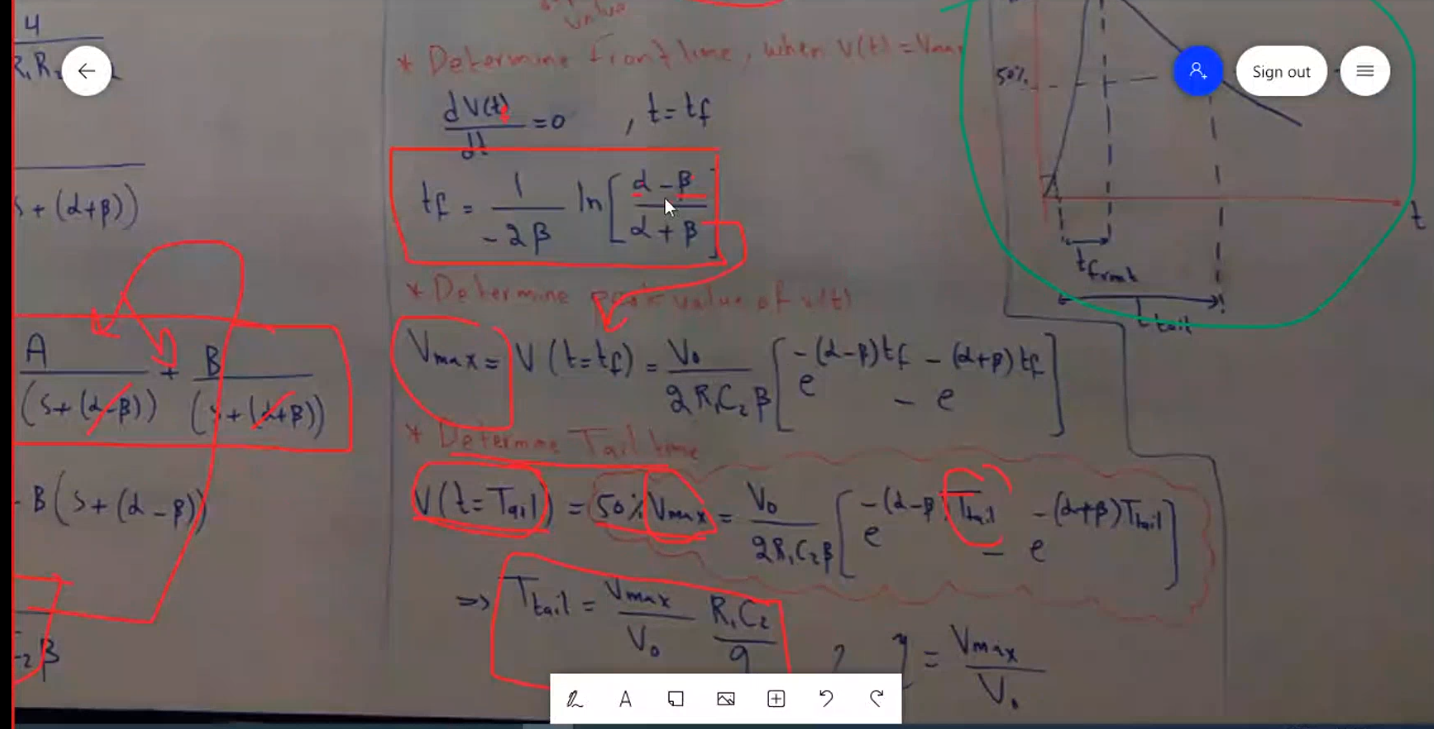 4
value
* Determine front time, when V(t) = Vmax
dV(t)/dt = 0 , t = tf
tf = 1/(-2β) ln[(α - β)/(α + β)]
* Determine peak value of v(t)
Vmax = V(t=tf) = V₀/(2R₁C₂β) [e^(-(α-β)tf) - e^(-(α+β)tf)]
* Determine Tail time
V(t=Tail) = 50% Vmax = V₀/(2R₁C₂β) [e^(-(α-β)Ttail) - e^(-(α+β)Ttail)]
=> Ttail = Vmax/V₀ R₁C₂
= Vmax/V₀
+ (α+β))
A/(S+(α-β)) + B/(S+(α+β))
B(S+(α-β))
50%
t
tfront
ttail
Sign out
A